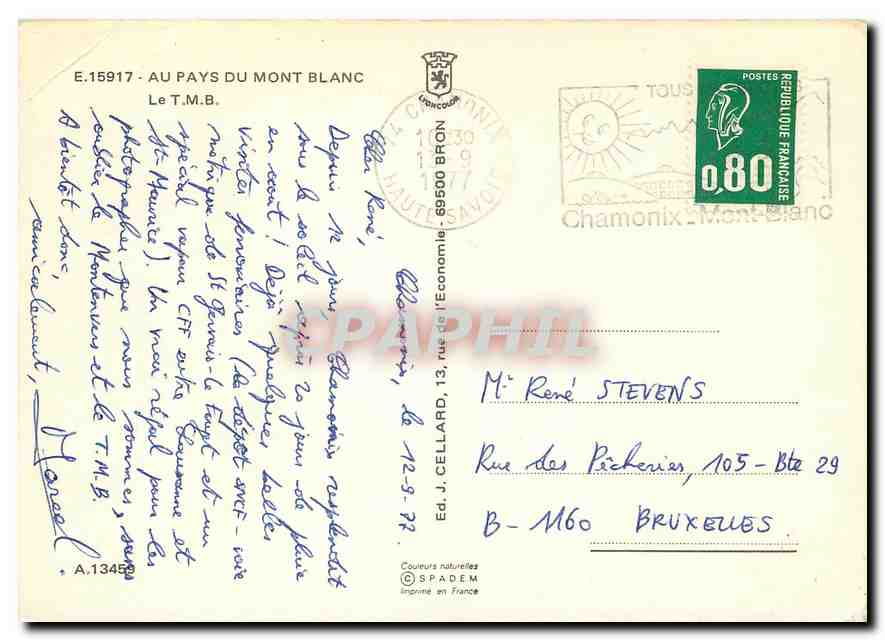 E.15917 - AU PAYS DU MONT BLANC
Le T.M.B.
LYONCOLOR
Chamonix, le 12-9-77.
Cher René,
Depuis 12 jours, Chamonix resplendit
sous le soleil après 20 jours de pluie
en août ! Déjà quelques belles
visites ferroviaires (le dépôt SNCF - voie
métrique de St Gervais-le Fayet et un
spécial vapeur CFF entre Lausanne et
St-Maurice). Un vrai régal pour les
photographes que nous sommes, sans
oublier le Montenvers et le T.M.B.
A bientôt donc,
amicalement,
Marcel.
A.13459
Ed. J. CELLARD, 13, rue de l'Economie - 69500 BRON
Couleurs naturelles
© SPADEM
Imprimé en France
74 CHAMONIX
10H30
12-9
1977
HAUTE-SAVOIE
TOUS
Chamonix-Mont-Blanc
POSTES
REPUBLIQUE FRANÇAISE
0,80
CPAPHIL
Mr René STEVENS
Rue des Pêcheries, 105 - Bte 29
B - 1160 BRUXELLES